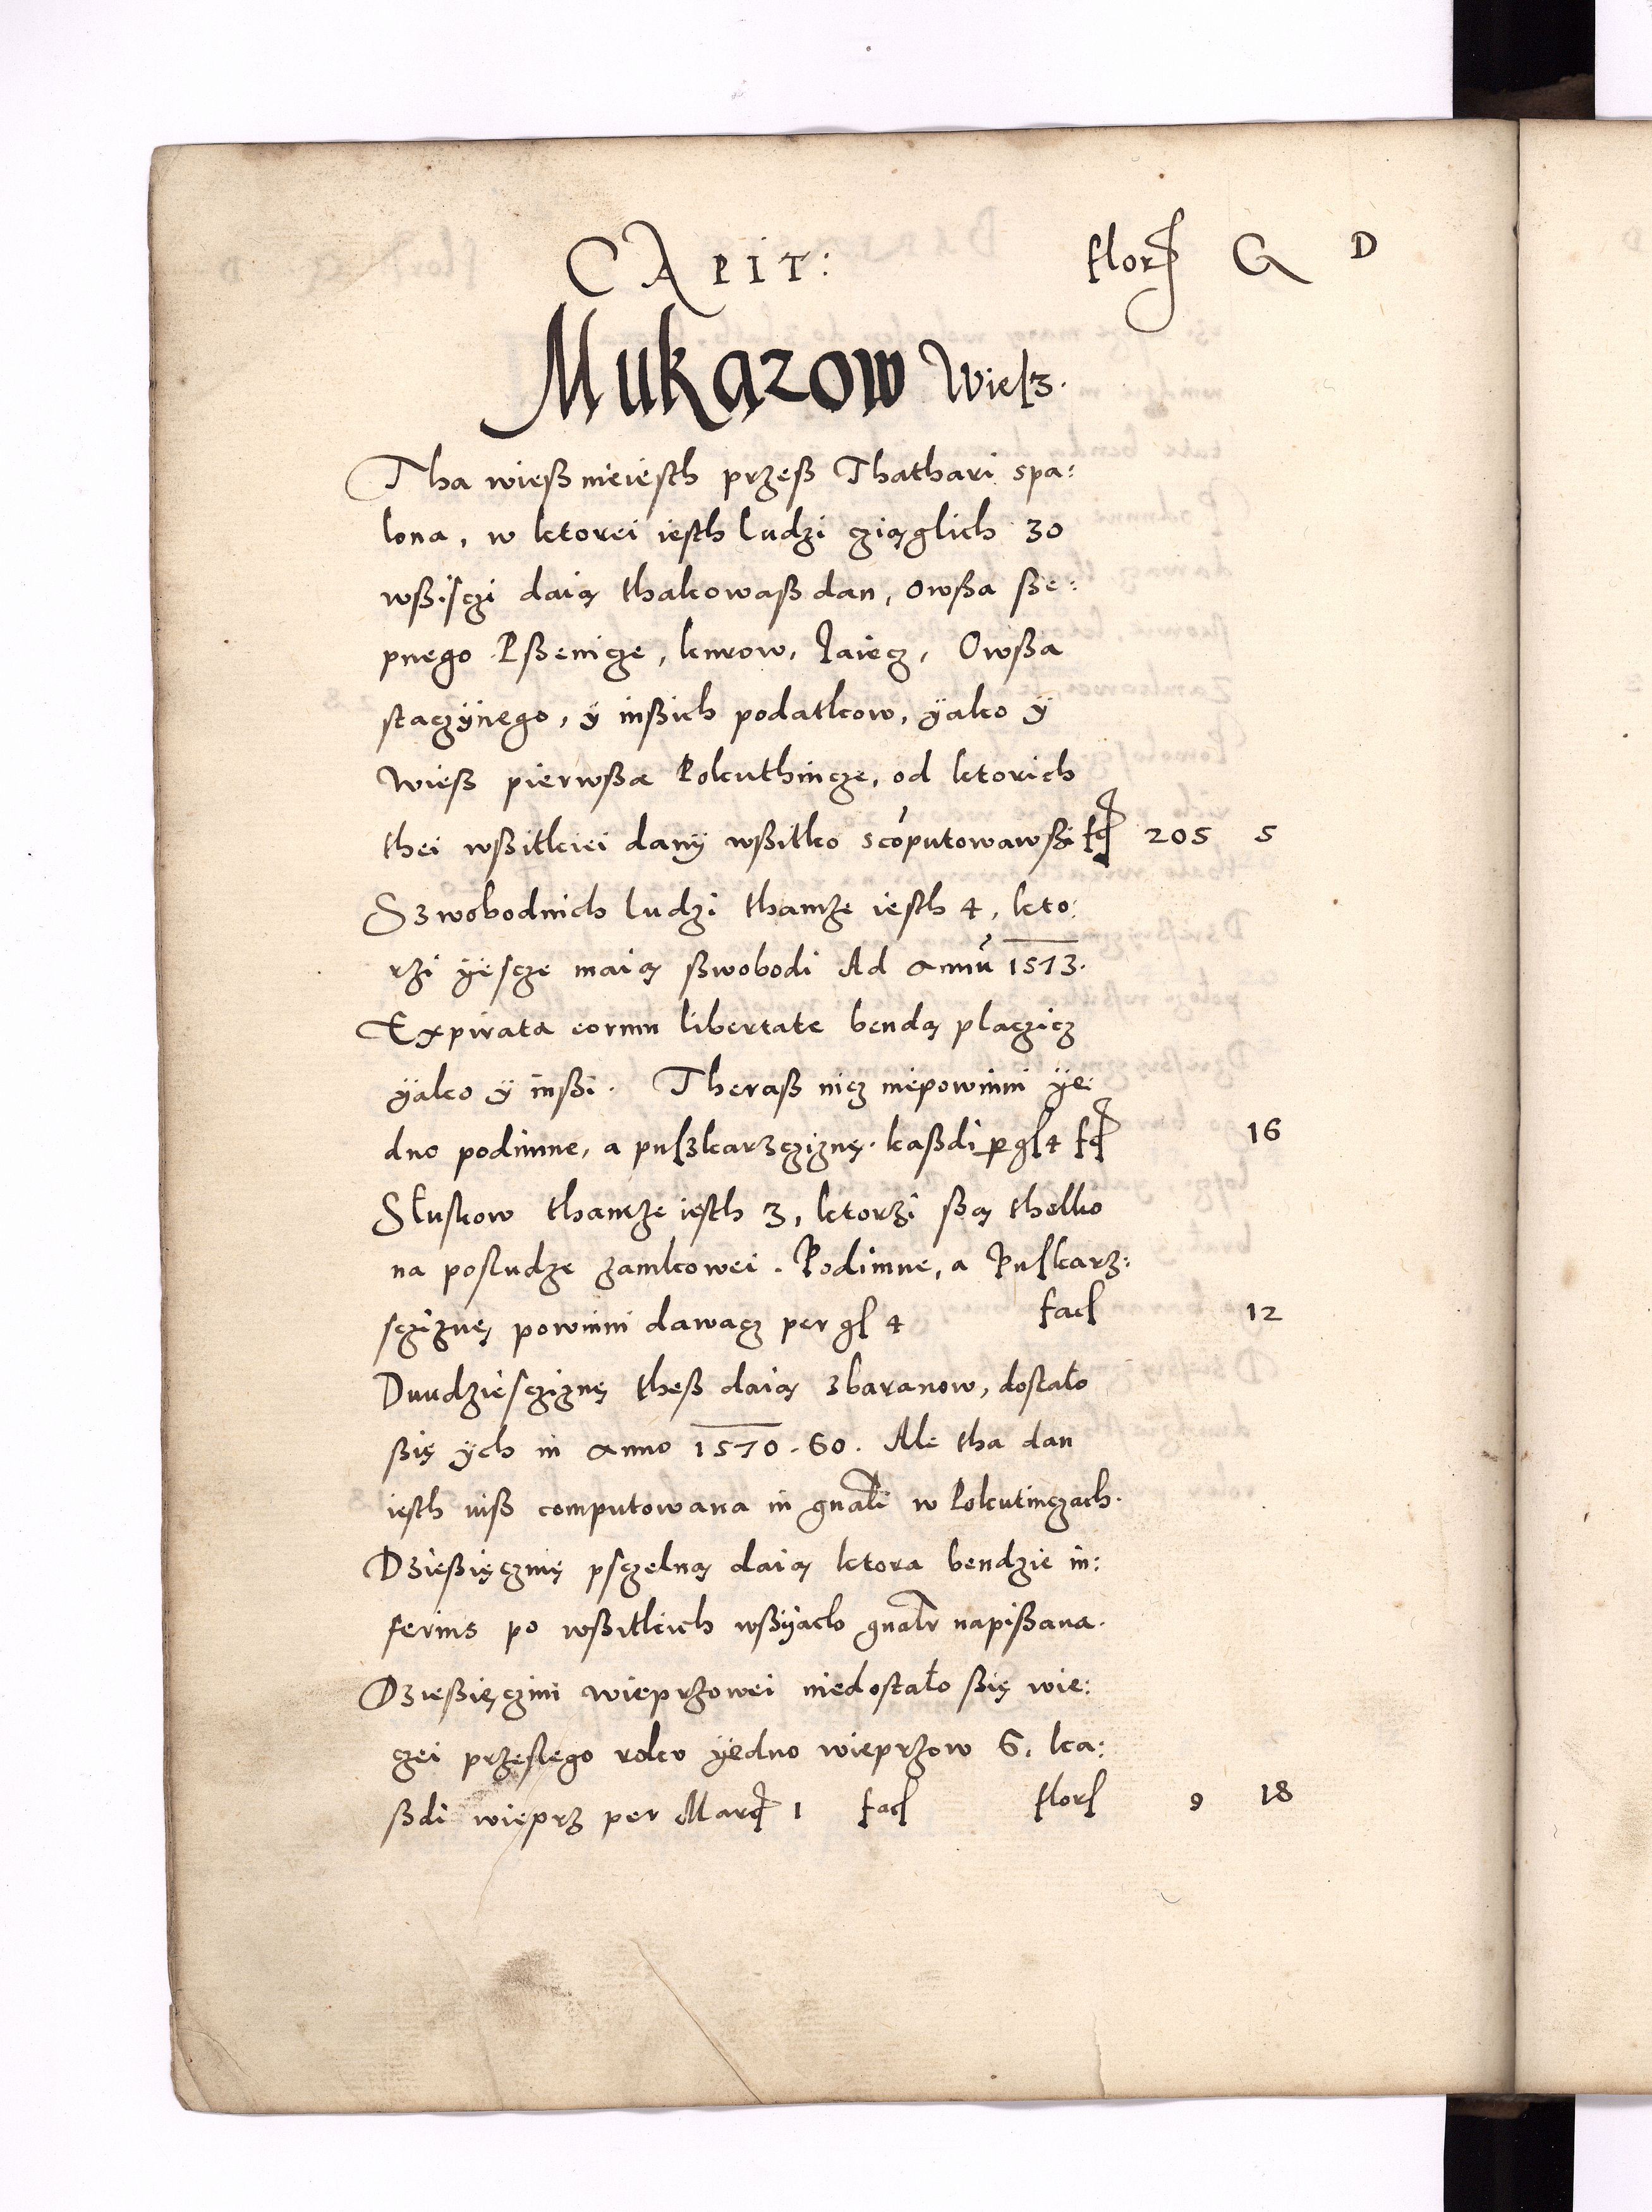 CAPIT: flor G D
Mukarow Wiesz.
Tha wieß nieiesth przeß Thathari spa:
lona, w ktorei iesth ludzi cziąglich 30
wßisczi daią thakowaß dan, owßa ße:
pnego Pßenicze, kurow, Jaiecz, Owßa
staczÿnego, ÿ inßich podatkow, ÿako ÿ
Wieß pierwßa Polcuthincze, od ktorich
thei wßitkiei danÿ wßitko scõputowawßi fc 205 5
Szwobodnich ludzi thamże iesth 4, kto:
rżi ÿescze maią ßwobodi Ad annũ 1573.
Expirata eorum libertate bendą placzicz
ÿako ÿ inßi. Theraß nicz niepowinni ÿe:
dno podimne, a puszkarzcziznę. kaßdi p gl 4 fc 16
Sluskow thamże iesth 3, ktorżi ßą thelko
na posludze zamkowei. Podimne, a Puskarz:
scziznę powinni dawacz per gl 4 fac 12
Dwudziescziznę theß daią 3baranow, dostało
ßię ÿch in anno 1570. 60. Ale tha dan
iesth niß computowana in gnali w Polcutinczach.
Dzießięcznię psczelną daią ktora bendzie in:
ferius po wßitkich wßÿach gnalr napißana.
Dzießięczini wieprzowei niedostało ßię wie:
czei przeslego roku ÿedno wieprzow 6, ka:
ßdi wieprz per Marc 1 fac flor 9 18